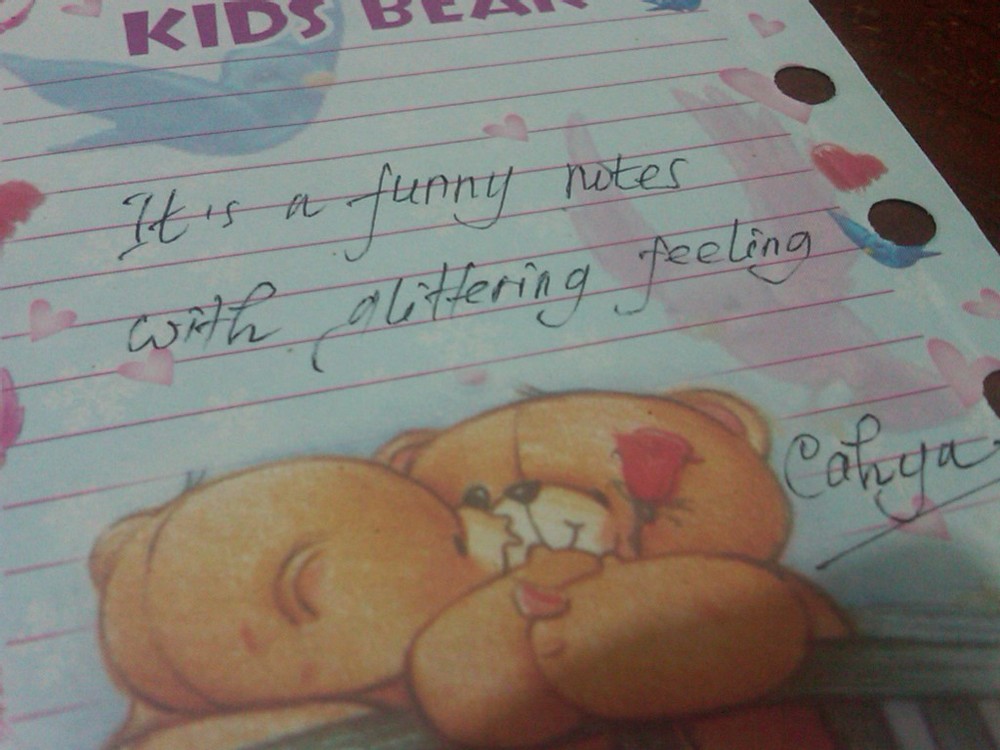 KIDS BEAR
It's a funny notes
with glittering feeling
Cahya